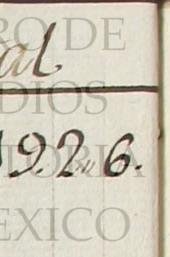 al
1926.
RO DE
DIOS
TORIA
EXICO